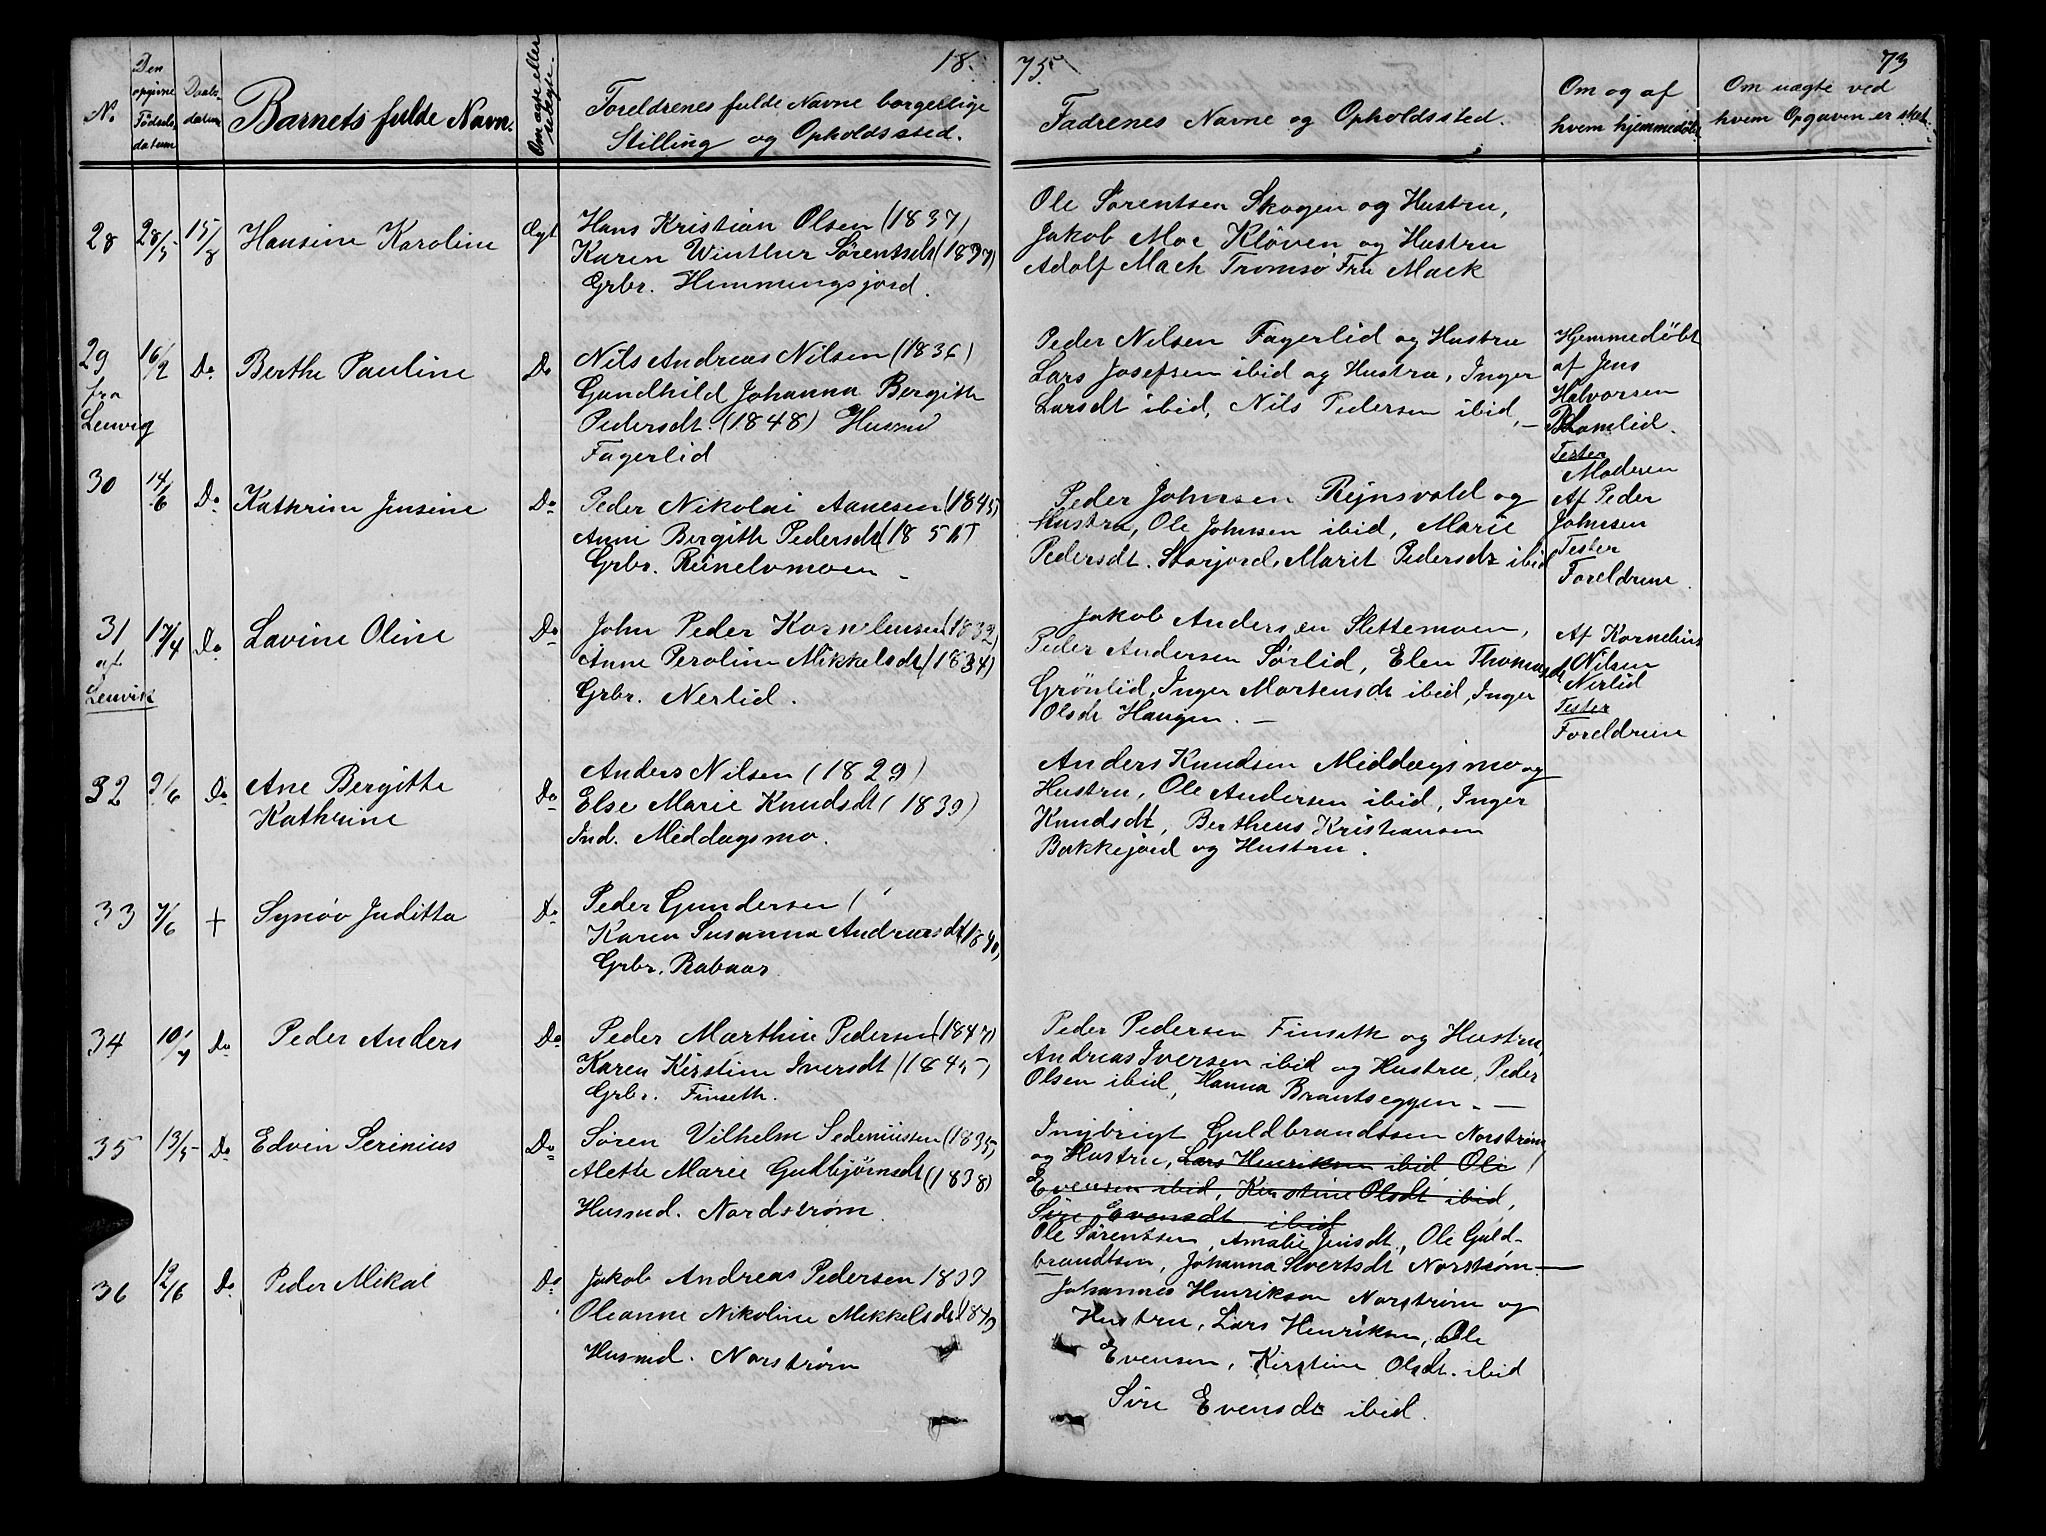 18 75.
73
No
Den opgivne Fødselsdatum
Daabsdatum
Barnets fulde Navn.
Om ægte eller uægte.
Foreldrenes fulde Navne borgerlige
Stilling og Opholdssted.
Fadrenes Navne og Opholdssted.
Om og af
hvem hjemmedøbt
Om uægte ved
hvem Opgaven er sket.
28 28/5 15/8 Hansine Karoline Ægt
Hans Kristian Olsen (1837)
Karen Winther Sørentsdt (1837)
Grbr. Hemmingsjord.
Ole Sørentsen Skogen og Hustru,
Jakob Moe Kløven og Hustru
Adolf Mack Tromsø Fru Mack
29 16/2 Do Berthe Pauline Do
fra
Lenvig
Nils Andreas Nilsen (1836)
Gundhild Johanna Bergitte
Pedersdt. (1848) Husmd
Fagerlid
Peder Nilsen Fagerlid og Hustru
Lars Josefsen ibid og Hustru, Inger
Larsdt ibid, Nils Pedersen ibid, —
Hjemmedøbt
af Jens
Halvorsen
Blomlid.
Tester
Moderen
30 14/6 Do Kathrine Jensine Do
Peder Nikolai Aanesen (1845)
Anne Bergithe Pedersdt (185
Grbr. Reinelvmoen —
Peder Johnsen Rejnsvold og
Hustru, Ole Johnsen ibid, Marie
Pedersdt. Storjord, Marit Pedersdt ibid
Af Peder
Johnsen
Tester
Foreldrene.
31 17/4 Do Lavine Oline Do
af
Lenvik
John Peder Kornelusen (1832)
Anne Peroline Mikkelsdt (1834)
Grbr. Nerlid.
Jakob Andersen Slettemoen,
Peder Andersen Sørlid, Elen Thomasdt
Grønlid, Inger Mortensdt ibid, Inger
Olsdt Haugen. —
Af Kornelius
Nilsen
Nerlid
Tester
Foreldrene
32 9/6 Do Ane Bergitte Do
Kathrine
Anders Nilsen (1829)
Else Marie Knudsdt (1839)
Ind. Middagsmo.
Anders Knudsen Middagsmo og
Hustru, Ole Andersen ibid, Inger
Knudsdt, Bertheus Kristiansen
Bakkejord og Hustru.
33 7/6 + Synøv Juditta Do
Peder Gundersen (
Karen Susanna Andreasdt (1840)
Grbr. Rabaas.
34 10/7 Do Peder Anders Do
Peder Marthin Pedersen (1847)
Karen Kirstine Iversdt (1845)
Grbr. Finseth.
Peder Pedersen Finseth og Hustru,
Andreas Iversen ibid og Hustru, Peder
Olsen ibid, Hanna Brantseggen. —
35 13/5 Do Edvin Serinius Do
Søren Vilhelm Sedeniussen (1835)
Alette Marie Gudbjørnsdt (1838)
Husmd. Nordstrøm
Ingbrigt Guldbrandssen Norstrøm
og Hustru, Lars Henriksen ibid Ole
Evensen ibid, Kirstine Olsdt ibid,
Sire Evensdt ibid
Ole Sørentsen, Amalie Jensdt, Ole Guld-
brandtsen, Johanna Sivertsdt Norstrøm —
36 12/6 Do Peder Mikal Do
Jakob Andreas Pedersen 1839
Oleanne Nikoline Mikkelsdt (1849)
Husmd. Norstrøm
Johannes Henriksen Norstrøm og
Hustru, Lars Henriksen, Ole
Evensen, Kirstine Olsdt. ibid
Sire Evensdt ibid.